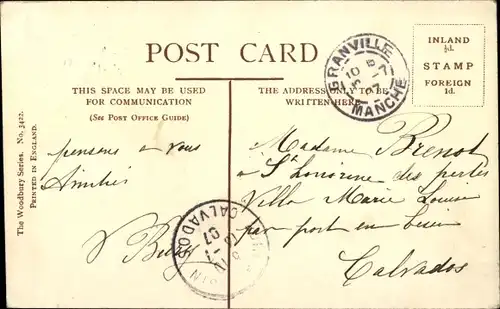 POST CARD
THIS SPACE MAY BE USED
FOR COMMUNICATION
(See Post Office Guide)
THE ADDRESS ONLY TO BE
WRITTEN HERE
INLAND
½d.
STAMP
FOREIGN
1d.
GRANVILLE
MANCHE
The Woodbury Series. No. 3422.
Printed in England.
pensons à vous
Amitiés
Madame Brenot
à Ste Honorine des pertes
Villa Marie Louise
par port en bessin
Calvados
CALVADOS
07